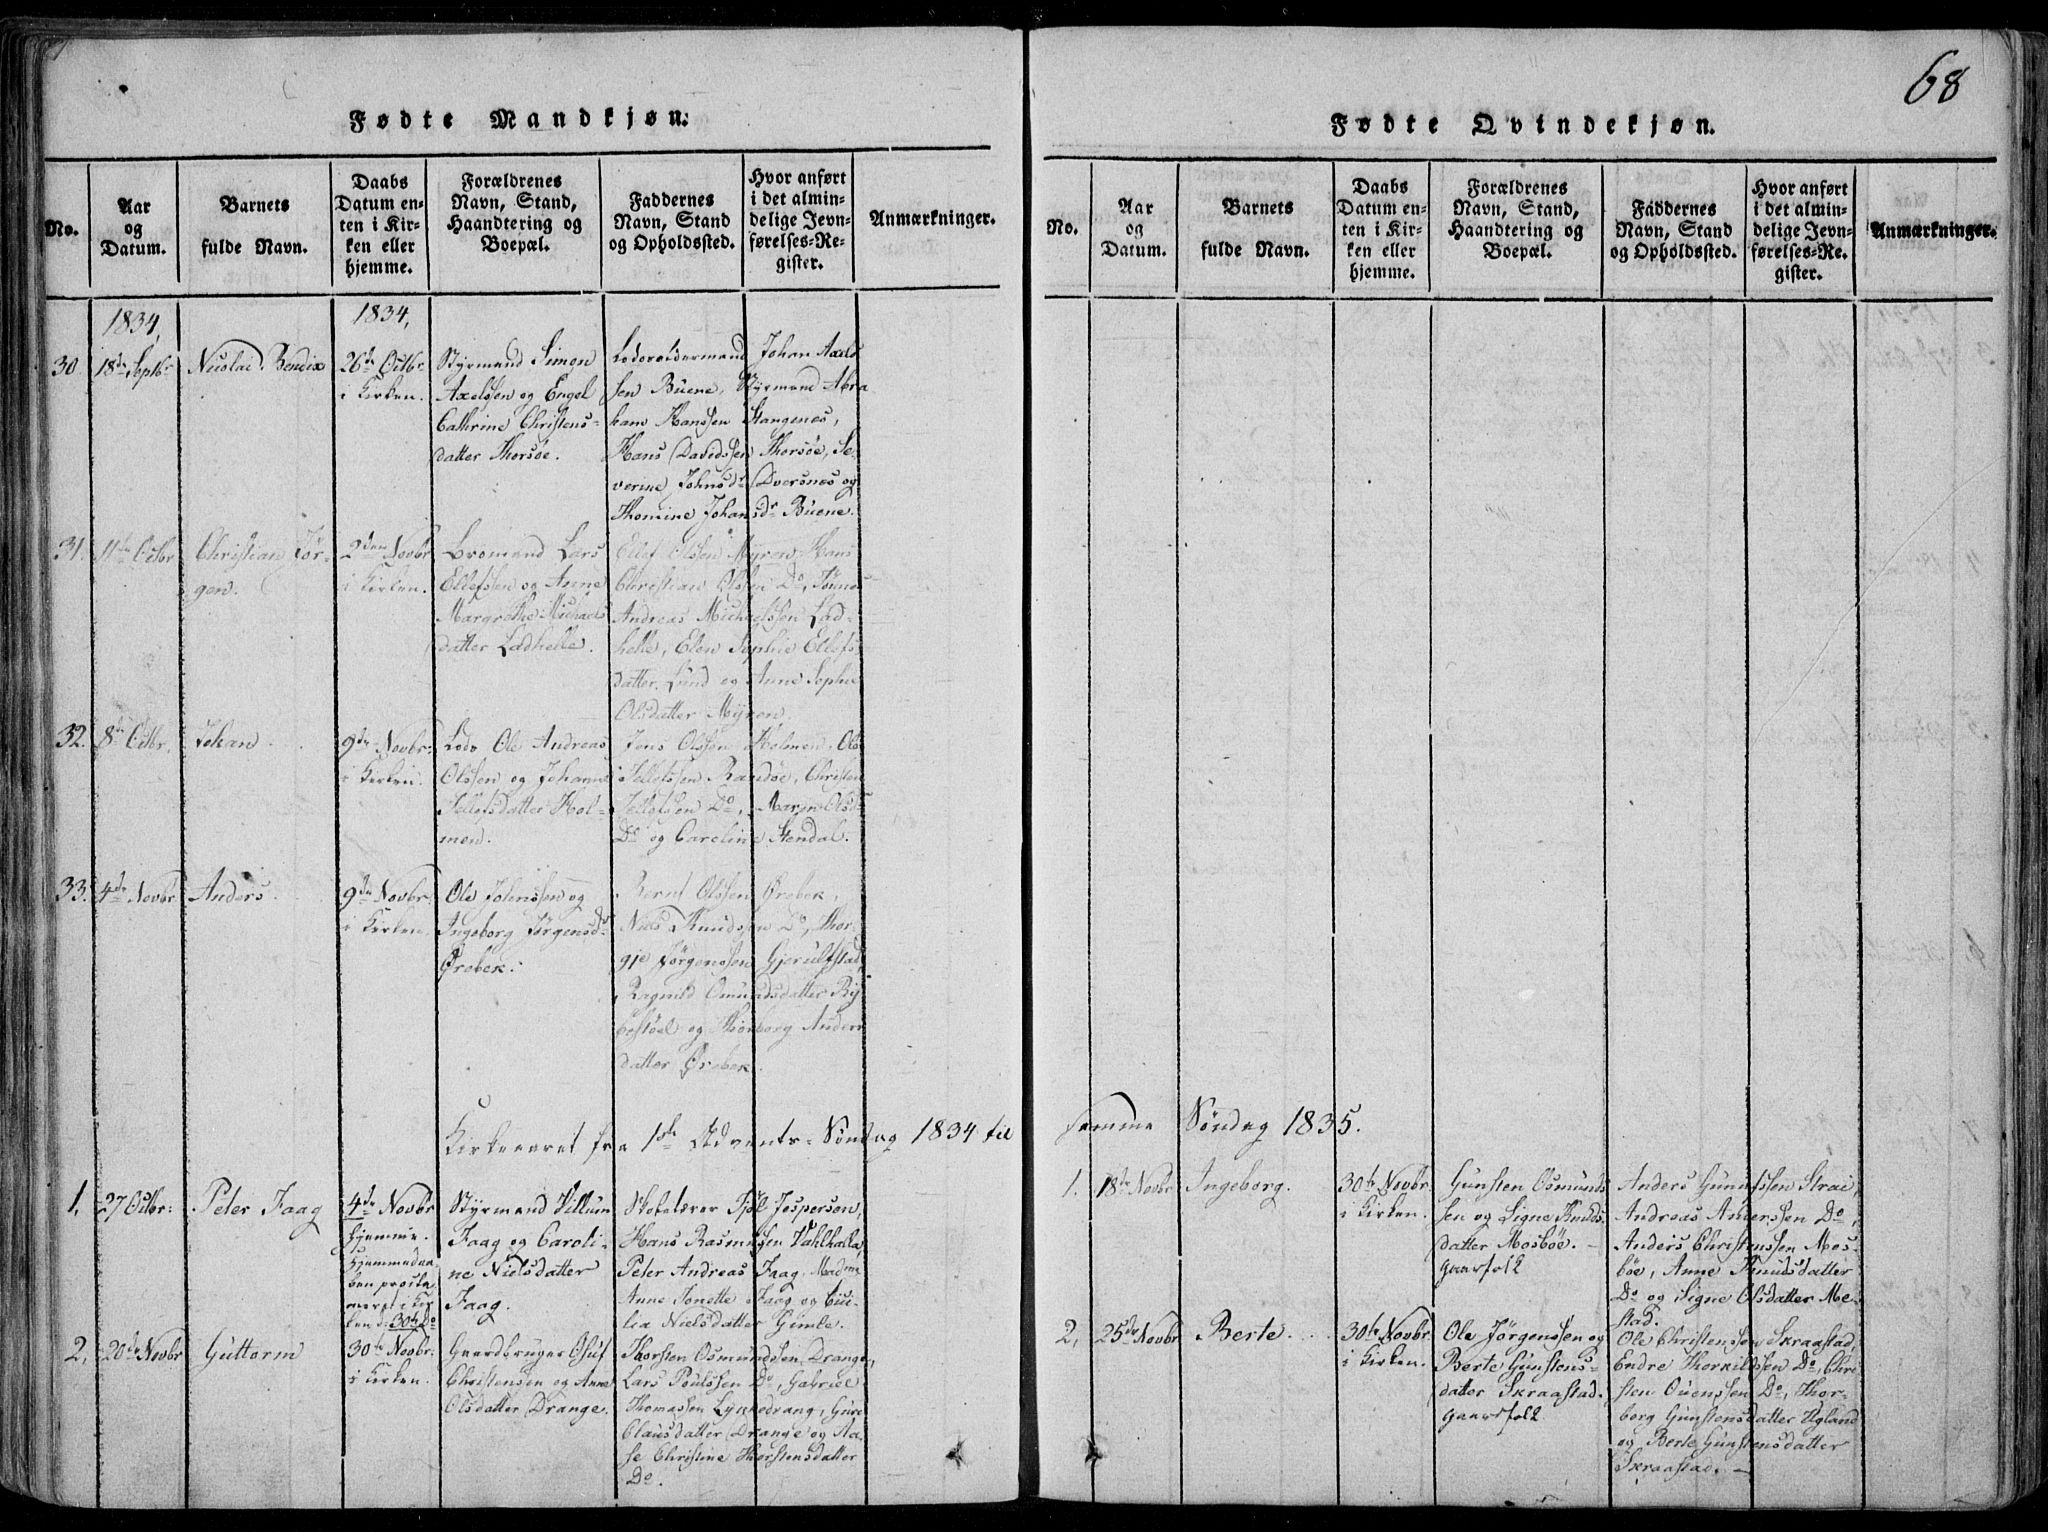 68
Fødte Mandkjøn.
No.
Aar
og
Datum.
Barnets
fulde Navn.
Daabs
Datum en-
ten i Kir-
ken eller
hjemme.
Forældrenes
Navn, Stand,
Haandtering og
Boepæl.
Faddernes
Navn, Stand
og Opholdssted.
Hvor anført
i det almin-
delige Jevn-
førelses-Re-
gister.
Anmærkninger.
1834,
1834,
30
18de Septbr
Nicolai Bendix
26de Octbr.
i Kirken.
Styrmand Simon
Axelssen og Engel
Cathrine Christens-
datter Thorsöe.
Lodsoldermand Johan Axels
sen Buene, Styrmand Abra
ham Hanssen Stangenes,
Hans Davidssen Thorsöe, Se-
verine Johnsdr Dversnes og
Thomine Johansdr Buene.
31.
11te Octbr
Christian Jör-
gen.
2den Novbr
i Kirken.
Lars
Ellefssen og Anne
Margrethe Michaels
datter Ladhelle.
Ellef Olssen Myren, Hans
Christian Olssen Do, Tönnes
Andreas Michaelssen Lad-
helle, Elen Sophie Ellefs
datter Lund og Anne Sophie
Olsdatter Myren.
32.
8de Octbr.
Johan
9de Novbr.
i Kirken.
Lods Ole Andreas
Olssen og Johanne
Tellefsdatter Hol-
men.
Jens Olssen Holmen, Ole
Tellefssen Randöe, Christen
Tellefssen Do, Maren Olsdr
Do og Caroline Stendal.
33.
4de Novbr
Anders.
9de Novbr.
i Kirken.
Ole Johnssen og
Ingeborg Jörgensdr
Örebek.
Bernt Olssen Örebek,
Niels Knudssen Do, Thor-
gje Jörgenssen Gjerulfstad,
Ragnild Omundsdatter Ry
bestöel og Thorborg Anders
datter Örebek.
Kirkeaaret fra 1ste Advents-Söndag 1834 til
1.
27 Octbr:
Peter Faag
4de Novbr
hjemme.
Hjemmedaa-
ben
i Kir
ken d. 30te Do
Styrmand Villum
Faag og Caroli-
ne Nielsdatter
Faag.
Skolelærer Jespersen,
Hans Rasmussen Vahlhalla,
Peter Andreas Faag, Madme
Anne Tonette Faag og
Nielsdatter Gimle.
2.
20de Novbr
Guttorm
30te Novbr.
i Kirken.
Gaardbruger Oluf
Christensen og Anne
Olsdatter Drange.
Thorsten Osmundssen Drange,
Lars Poulssen Do, Gabriel
Thomassen Lykkedrang, Gure
Clausdatter Drange og Aa-
se Christine Thorstensdatter
Do.
Fødte Qvindekjøn.
No.
Aar
og
Datum.
Barnets
fulde Navn.
Daabs
Datum en-
ten i Kir-
ken eller
hjemme.
Forældrenes
Navn, Stand,
Haandtering og
Boepæl.
Faddernes
Navn, Stand
og Opholdssted.
Hvor anført
i det almin-
delige Jevn-
førelses-Re-
gister.
Anmærkninger.
samme Söndag 1835.
1.
18de Novbr
Ingeborg.
30te Novbr.
i Kirken.
Gunsten Osmunds
sen og Signe Knuds
datter Mosböe.
Gaardfolk
Anders Gunnssen Strai,
Andreas Anderssen Do,
Anders Christenssen Mos-
böe, Anne Knudsdatter
Do og Signe Olsdatter Me-
stad.
2.
25de Novbr
Berte.
30te Novbr.
i Kirken.
Ole Jörgenssen og
Berte Gunstens-
datter Skraastad.
Gaardfolk
Ole Christenssen Skraastad,
Endre Thorkildssen Do, Chri
sten Ouenssen Do, Thor-
borg Gunstensdatter Hgland
og Berte Gunstensdatter
Skraastad.